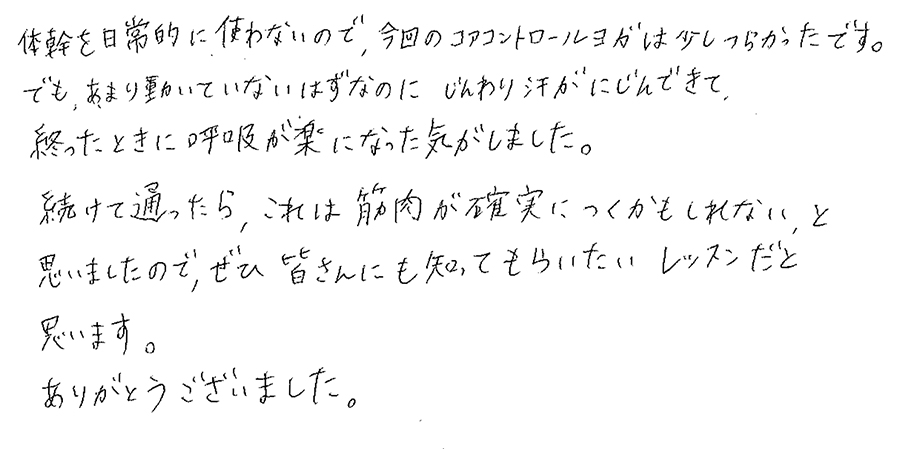 体幹を日常的に使わないので、今回のコアコントロールヨガは少しつらかったです。
でも、あまり動いていないはずなのに じんわり汗がにじんできて、
終ったときに呼吸が楽になった気がしました。
続けて通ったら、これは筋肉が確実につくかもしれない、と
思いましたので、ぜひ皆さんにも知ってもらいたい レッスンだと
思います。
ありがとうございました。